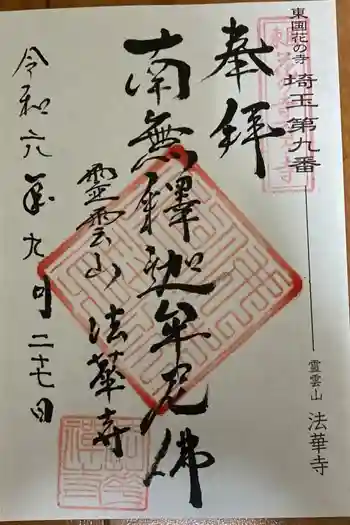 東国花の寺 埼玉第九番
霊雲山 法華寺
奉拝
南無釋迦牟尼佛
靈雲山 法華寺
令和六年九月二十七日